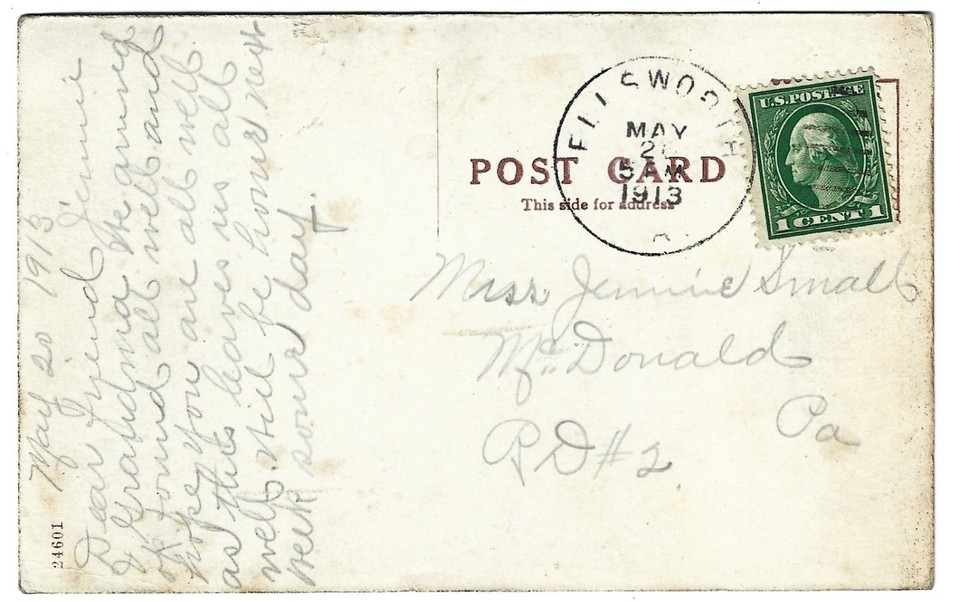 May 20 1913
Dear Friend Jennie
& Grandma We arrived
OK found all well and
hope you are all well
as this leaves us all
well. will be home next
week some day.
24601
ELLSWORTH
MAY
5 AM
1913
POST CARD
This side for address
U.S. POSTAGE
1 CENT 1
Miss Jennie Small
McDonald
Pa
RD#2.